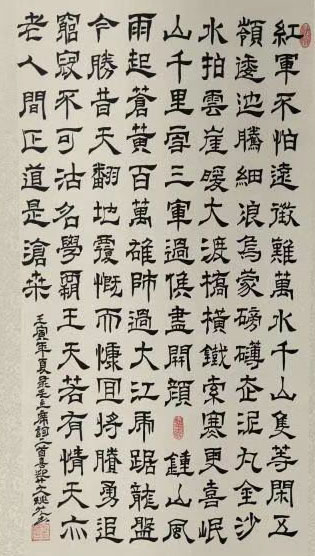 紅軍不怕遠徵難萬水千山隻等閑五
嶺逶迤騰細浪烏蒙磅礴走泥丸金沙
水拍雲崖暖大渡橋橫鐵索寒更喜岷
山千里雪三軍過後盡開顏 鍾山風
雨起蒼黃百萬雄師過大江虎踞龍盤
今勝昔天翻地覆慨而慷宜將賸勇追
窮寇不可沽名學霸王天若有情天亦
老人間正道是滄桑
壬寅年夏录毛主席詞二首